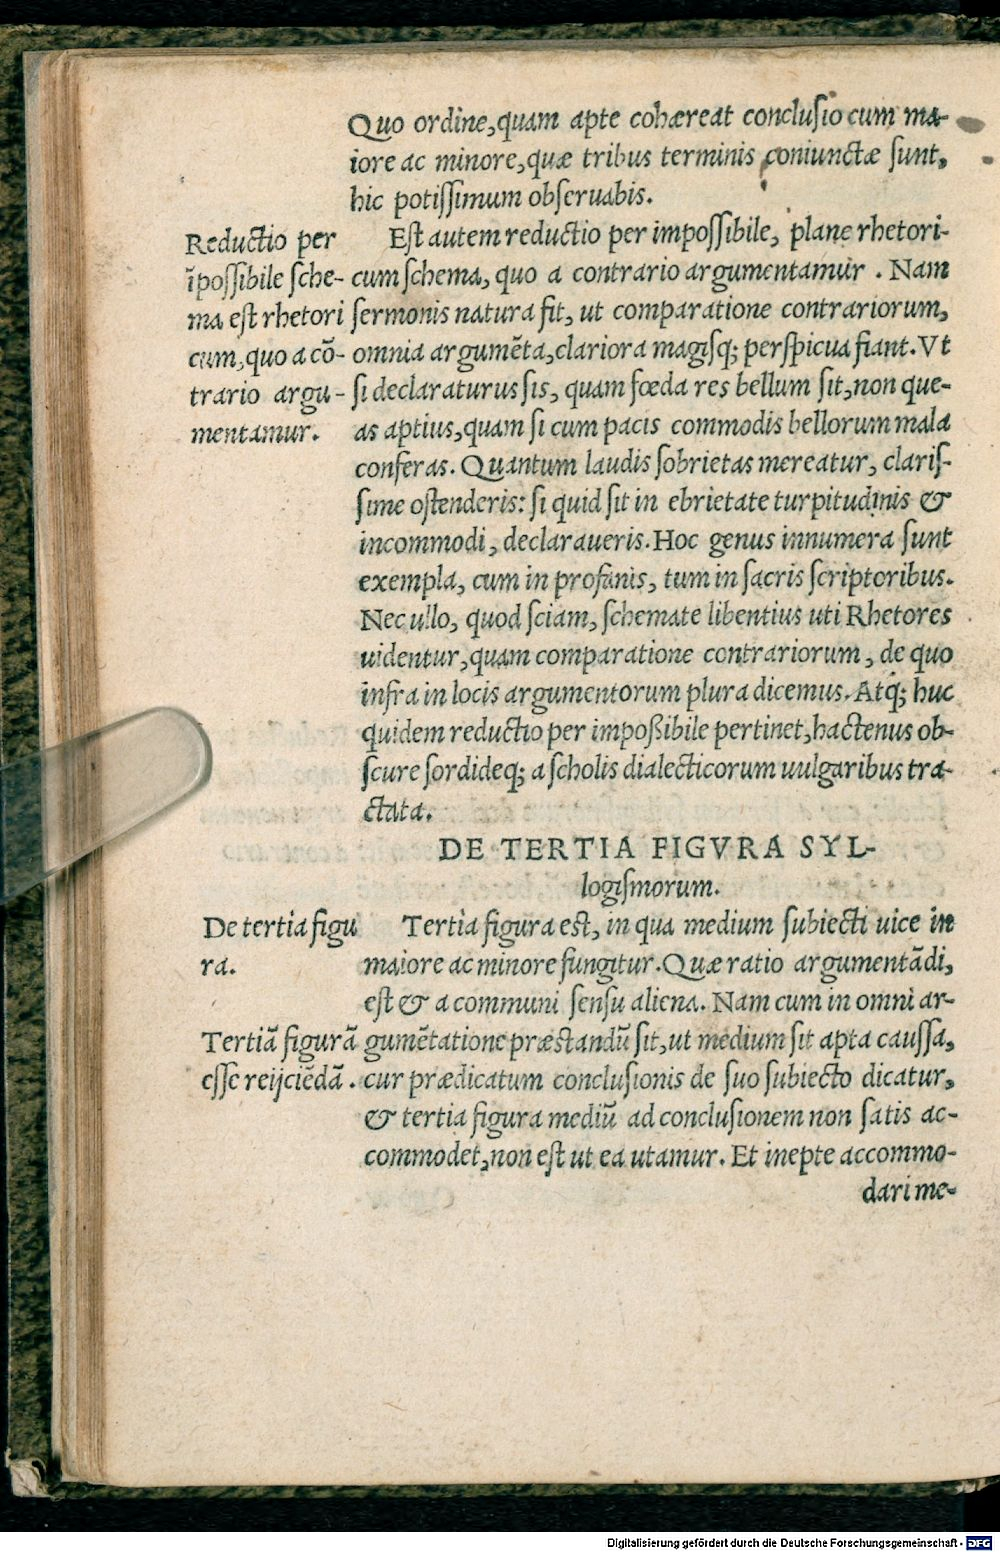 Quo ordine, quam apte cohæreat conclusio cum ma-
iore ac minore, quæ tribus terminis coniunctæ sunt,
hic potissimum obseruabis.
Reductio per
ĩpossibile sche-
ma est rhetori
cum, quo a cõ-
trario argu-
mentamur.
Est autem reductio per impossibile, plane rhetori-
cum schema, quo a contrario argumentamur. Nam
sermonis natura fit, ut comparatione contrariorum,
omnia argumẽta, clariora magisq; perspicua fiant. Vt
si declaraturus sis, quam fœda res bellum sit, non que-
as aptius, quam si cum pacis commodis bellorum mala
conferas. Quantum laudis sobrietas mereatur, claris-
sime ostenderis: si quid sit in ebrietate turpitudinis &
incommodi, declaraueris. Hoc genus innumera sunt
exempla, cum in profanis, tum in sacris scriptoribus.
Nec ullo, quod sciam, schemate libentius uti Rhetores
uidentur, quam comparatione contrariorum, de quo
infra in locis argumentorum plura dicemus. Atq; huc
quidem reductio per impoßibile pertinet, hactenus ob-
scure sordideq; a scholis dialecticorum uulgaribus tra-
ctata.
DE TERTIA FIGVRA SYL-
logismorum.
De tertia figu
ra.
Tertia figura est, in qua medium subiecti uice in
maiore ac minore fungitur. Quæ ratio argumentãdi,
est & a communi sensu aliena. Nam cum in omni ar-
Tertiã figurã
esse reijciẽdã.
gumẽtatione præstandũ sit, ut medium sit apta caussa,
cur prædicatum conclusionis de suo subiecto dicatur,
& tertia figura mediũ ad conclusionem non satis ac-
commodet, non est ut ea utamur. Et inepte accommo-
dari me-
Digitalisierung gefördert durch die Deutsche Forschungsgemeinschaft - DFG